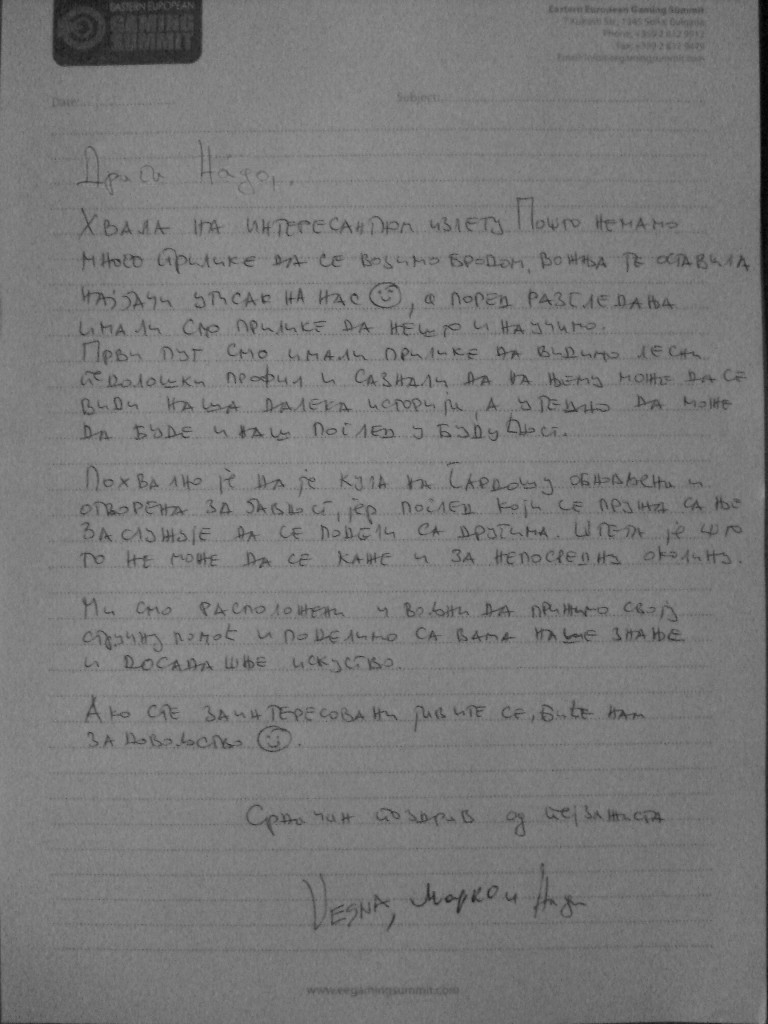 EASTERN EUROPEAN
GAMING
SUMMIT
Eastern European Gaming Summit
Date:
Subject:
Драги Нађо,
Хвала на интересантном излету. Пошто немамо
много прилике да се возимо бродом, вожња је оставила
најјачи утисак на нас ☺, а поред разгледања
имали смо прилике да нешто и научимо.
Први пут смо имали прилике да видимо лесни
педолошки профил и сазнали да на њему може да се
види наша далека историја, а уједно да може
да буде и наш поглед у будућност.
Похвално је да је кула на Гардошу обновљена и
отворена за јавност, јер поглед који се пружа са ње
заслужује да се подели са другима. Штета је што
то не може да се каже и за непосредну околину.
Ми смо расположени и вољни да пружимо своју
стручну помоћ и поделимо са вама наше знање
и досадашње искуство.
Ако сте заинтересовани јавите се, биће нам
задовољство ☺.
Срдачан поздрав од пејзажиста
VESNA, Марко и
www.eegamingsummit.com